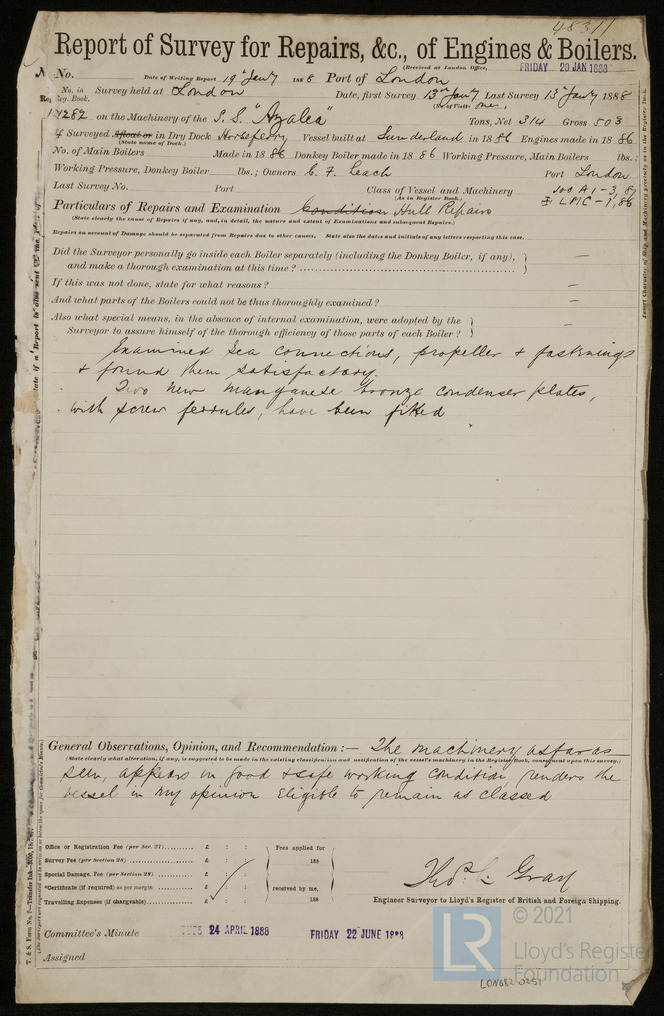 48311
Report of Survey for Repairs, &c., of Engines & Boilers.
(Received at London Office, FRIDAY 20 JAN 1888
No. Date of Writing Report 19th Jany 1888 Port of London
No. in Reg. Book. Survey held at London Date, first Survey 13th Jany Last Survey 13th Jany 1888
(No. of Visits one.)
on the Machinery of the S.S. "Azalea" Tons, Net 314 Gross 503
If Surveyed Afloat or in Dry Dock Horseferry Vessel built at Sunderland in 1886 Engines made in 1886
(State name of Dock.)
No. of Main Boilers Made in 1886 Donkey Boiler made in 1886 Working Pressure, Main Boilers lbs.;
Working Pressure, Donkey Boiler lbs.; Owners C. F. Leach Port London
Last Survey No. Port Class of Vessel and Machinery 100 A1 - 3, 87
(As in Register Book.) LMC - 1, 86
Particulars of Repairs and Examination Condition Hull Repairs
(State clearly the cause of Repairs if any, and, in detail, the nature and extent of Examinations and subsequent Repairs.)
Repairs on account of Damage should be separated from Repairs due to other causes. State also the dates and initials of any letters respecting this case.
Did the Surveyor personally go inside each Boiler separately (including the Donkey Boiler, if any), —
and make a thorough examination at this time?
If this was not done, state for what reasons? —
And what parts of the Boilers could not be thus thoroughly examined? —
Also what special means, in the absence of internal examination, were adopted by the —
Surveyor to assure himself of the thorough efficiency of those parts of each Boiler?
Examined Sea connections, propeller & fastenings
& found them satisfactory.
Two new manganese bronze condenser plates,
with screw ferrules, have been fitted
General Observations, Opinion, and Recommendation:— The machinery as far as
(State clearly what alteration, if any, is suggested to be made in the existing classification and notification of the vessel's machinery in the Register Book, consequent upon this survey.)
seen, appears in good & safe working condition, renders the
vessel in my opinion eligible to remain as classed
Office or Registration Fee (per Sec. 27) £ : : Fees applied for
Survey Fee (per Section 28) £ : : 188
Special Damage Fee (per Section 28) £ : :
*Certificate (if required) as per margin £ : : received by me,
Travelling Expenses (if chargeable) £ : : 188
Thos. L. Gray
Engineer Surveyor to Lloyd's Register of British and Foreign Shipping.
Committee's Minute TUES 24 APRIL 1888 FRIDAY 22 JUNE 1888
Assigned
LR © 2021
Lloyd's Register
Foundation
LON682-0251